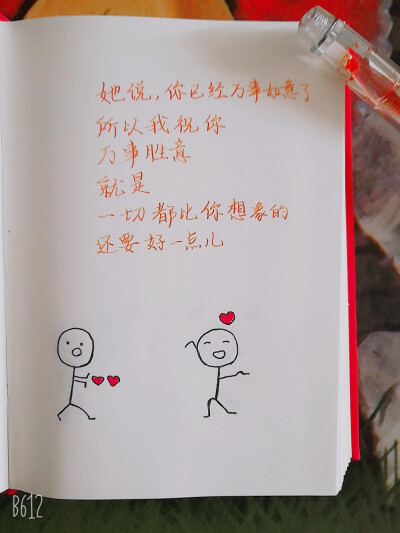 她说，你已经万事如意了
所以我祝你
万事胜意
就是
一切都比你想象的
还要好一点儿
B612